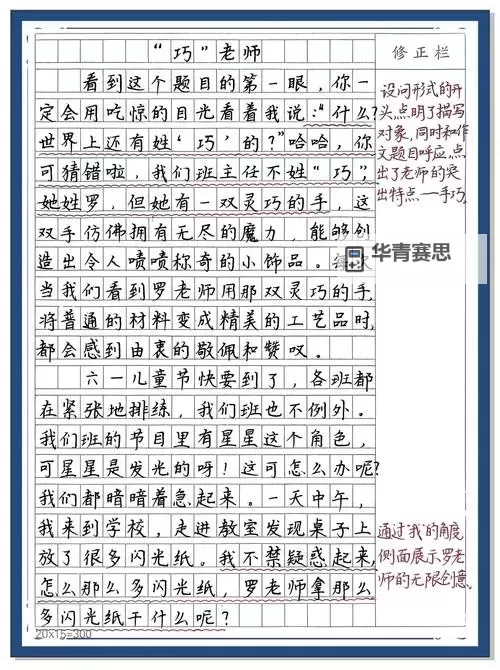 “巧”老师
修正栏
看到这个题目的第一眼，你一
定会用吃惊的目光看着我说：“什么？
世界上还有姓‘巧’的？”哈哈，你
可猜错啦，我们班主任不姓“巧”，
她姓罗，但她有一双灵巧的手，这
双手仿佛拥有无尽的魔力，能够创
造出令人啧啧称奇的小饰品。每次
当我们看到罗老师用那双灵巧的手，
将普通的材料变成精美的工艺品时，
都会感到由衷的敬佩和赞叹。
六一儿童节快要到了，各班都
在紧张地排练，我们班也不例外。
我们班的节目里有星星这个角色，
可星星是发光的呀！这可怎么办呢？
我们都暗暗着急起来。一天中午，
我来到学校，走进教室发现桌子上
放了很多闪光纸。我不禁疑惑起来，
怎么那么多闪光纸，罗老师拿那么
多闪光纸干什么呢？
20x15=300
设问形式的开
头，点明了描写
对象，同时和作
文题目呼应，点
出了老师的突
出特点——手巧。
华青赛思
通过“我”的角度，
侧面展示罗老
师的无限创意。